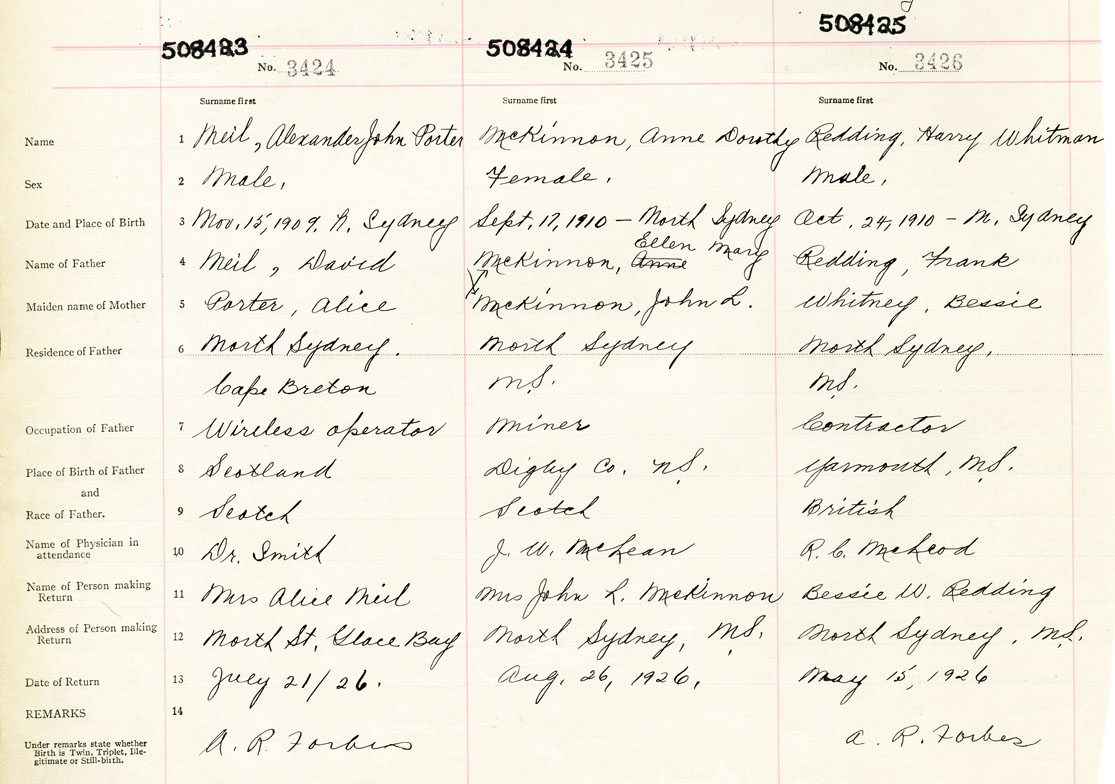 508423 508424 508425
No. 3424 No. 3425 No. 3426
Surname first Surname first Surname first
Name 1 Neil, Alexander John Porter McKinnon, Anne Dorothy Redding, Harry Whitman
Sex 2 Male, Female. Male,
Date and Place of Birth 3 Nov. 15, 1909. N. Sydney Sept. 17, 1910 – North Sydney Oct. 24, 1910 – N. Sydney
Ellen Mary
Name of Father 4 Neil, David McKinnon, Anne Redding, Frank
Maiden name of Mother 5 Porter, Alice McKinnon, John L. Whitney, Bessie
Residence of Father 6 North Sydney. North Sydney North Sydney,
Cape Breton N.S. N.S.
Occupation of Father 7 Wireless operator Miner Contractor
Place of Birth of Father 8 Scotland Digby Co. N.S. Yarmouth, N.S.
and
Race of Father. 9 Scotch Scotch British
Name of Physician in attendance 10 Dr. Smith J. W. McLean R. C. McLeod
Name of Person making Return 11 Mrs Alice Neil Mrs John L. McKinnon Bessie W. Redding
Address of Person making Return 12 North St, Glace Bay North Sydney, N.S. North Sydney, N.S.
Date of Return 13 July 21/26. Aug. 26, 1926, May 15, 1926
REMARKS 14
Under remarks state whether
Birth is Twin, Triplet, Ille-
gitimate or Still-birth.
A. R. Forbes A. R. Forbes